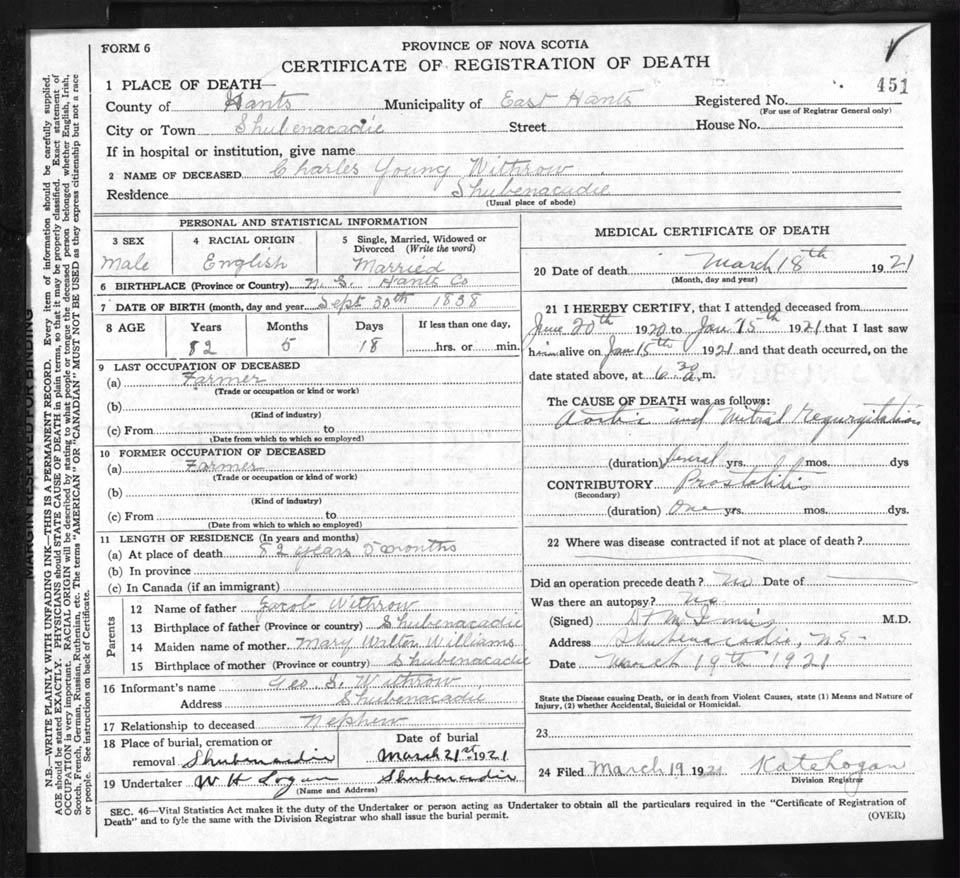 FORM 6
PROVINCE OF NOVA SCOTIA
CERTIFICATE OF REGISTRATION OF DEATH
451
1 PLACE OF DEATH—
County of Hants Municipality of East Hants Registered No.
(For use of Registrar General only)
City or Town Shubenacadie Street House No.
If in hospital or institution, give name
2 NAME OF DECEASED Charles Young Withrow
Residence Shubenacadie
(Usual place of abode)
PERSONAL AND STATISTICAL INFORMATION
3 SEX 4 RACIAL ORIGIN 5 Single, Married, Widowed or Divorced (Write the word)
Male English Married
6 BIRTHPLACE (Province or Country) N. S. Hants Co
7 DATE OF BIRTH (month, day and year) Sept 30th 1838
8 AGE Years Months Days If less than one day,
82 5 18 hrs. or min.
9 LAST OCCUPATION OF DECEASED
(a) Farmer
(Trade or occupation or kind or work)
(b)
(Kind of industry)
(c) From to
(Date from which to which so employed)
10 FORMER OCCUPATION OF DECEASED
(a) Farmer
(Trade or occupation or kind of work)
(b)
(Kind of industry)
(c) From to
(Date from which to which so employed)
11 LENGTH OF RESIDENCE (In years and months)
(a) At place of death 82 years 5 months
(b) In province
(c) In Canada (if an immigrant)
Parents
12 Name of father Jacob Withrow
13 Birthplace of father (Province or country) Shubenacadie
14 Maiden name of mother Mary Williams
15 Birthplace of mother (Province or country) Shubenacadie
16 Informant's name Geo S. Withrow
Address Shubenacadie
17 Relationship to deceased Nephew
18 Place of burial, cremation or removal Shubenacadie
Date of burial
March 21st 1921
19 Undertaker W H Logan Shubenacadie
(Name and Address)
MEDICAL CERTIFICATE OF DEATH
20 Date of death March 18th 1921
(Month, day and year)
21 I HEREBY CERTIFY, that I attended deceased from
June 20th 1920 to Jan 15th 1921 that I last saw
him alive on Jan 15th 1921 and that death occurred, on the
date stated above, at 6.30 a.m.
The CAUSE OF DEATH was as follows:
Aortic and Mitral Regurgitation
(duration) Several yrs. mos. dys
CONTRIBUTORY Prostatitis
(Secondary)
(duration) One yrs. mos. dys.
22 Where was disease contracted if not at place of death?
Did an operation precede death? No Date of
Was there an autopsy? No
(Signed) M.D.
Address Shubenacadie, N.S.
Date March 19th 1921
State the Disease causing Death, or in death from Violent Causes, state (1) Means and Nature of
Injury, (2) whether Accidental, Suicidal or Homicidal.
23
24 Filed March 19 1921 Kate Logan
Division Registrar
SEC. 46—Vital Statistics Act makes it the duty of the Undertaker or person acting as Undertaker to obtain all the particulars required in the "Certificate of Registration of
Death" and to fyle the same with the Division Registrar who shall issue the burial permit.
(OVER)
MARGIN RESERVED FOR BINDING
N.B.—WRITE PLAINLY WITH UNFADING INK—THIS IS A PERMANENT RECORD. Every item of information should be carefully supplied.
AGE should be stated EXACTLY. PHYSICIANS should STATE CAUSE OF DEATH in plain terms, so that it may be properly classified. Exact statement of
OCCUPATION is very important. RACIAL ORIGIN will be described by stating to what people or tongue the deceased person belonged whether English, Irish,
Scotch, French, German, Russian, Ruthenian, etc. The terms "AMERICAN" OR "CANADIAN" MUST NOT BE USED as they express citizenship but not a race
or people. See instructions on back of Certificate.